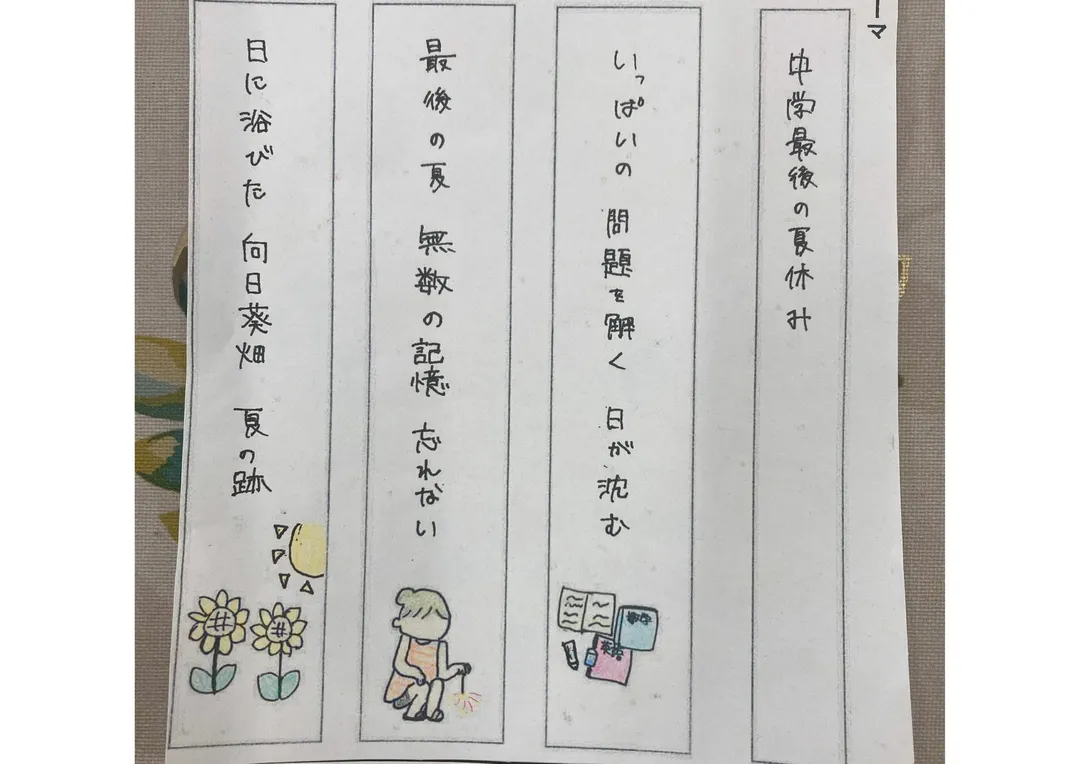 ーマ
中学最後の夏休み
いっぱいの 問題を解く 日が沈む
数学
英語
最後の夏 無数の記憶 忘れない
日に浴びた 向日葵畑 夏の跡